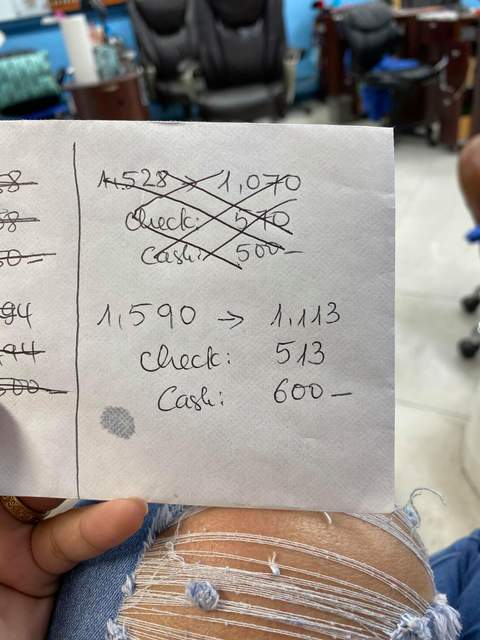 1,528 → 1,070
check: 570
cash: 500—
1,590 → 1,113
check: 513
Cash: 600—